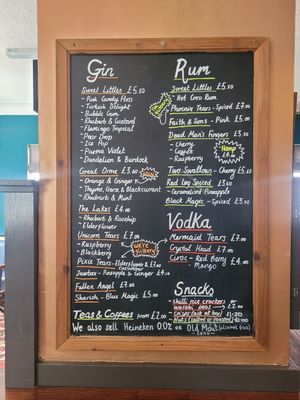 Gin
Sweet Littles £5.50
- Pink Candy Floss
- Turkish Delight
- Bubble Gum
- Rhubarb & Custard
- Flamingo Tropical
- Pear Drop
- Ice Pop
- Parma Violet
- Dandelion & Burdock
Great Orme £3.60
- Orange & Ginger
- Thyme, Corn & Blackcurrant
- Rhubarb & Mint
The Lakes £4.00
- Rhubarb & Rosehip
- Elderflower
Unicorn Tears £7.00
- Raspberry
- Blackberry
Pixie Tears - Elderflower & £7.00
Cucumber
Jawbox - Pineapple & Ginger £4.00
Fallen Angel £7.00
Sharish - Blue Magic £5.00
Teas & Coffees from £2.00
Rum
Sweet Littles £5.50
- Hot Cross Rum
Phoenix Tears - Spiced £7.00
Faith & Sons - Pink £5.00
Dead Man's Fingers £3.50
- Cherry
- Coffee
- Raspberry
Hemp
Two Swallows - Cherry £5.40
Red Leg Spiced £3.50
- Caramelised Pineapple
Black Magic - Spiced £3.50
Vodka
Mermaid Tears £7.00
Crystal Head £7.00
Ciroc - Red Berry £4.00
- Mango
Snacks
Chilli rice crackers
Crisps £1.20
We also sell Heineken 0.0% or Old Mout (alcohol free)